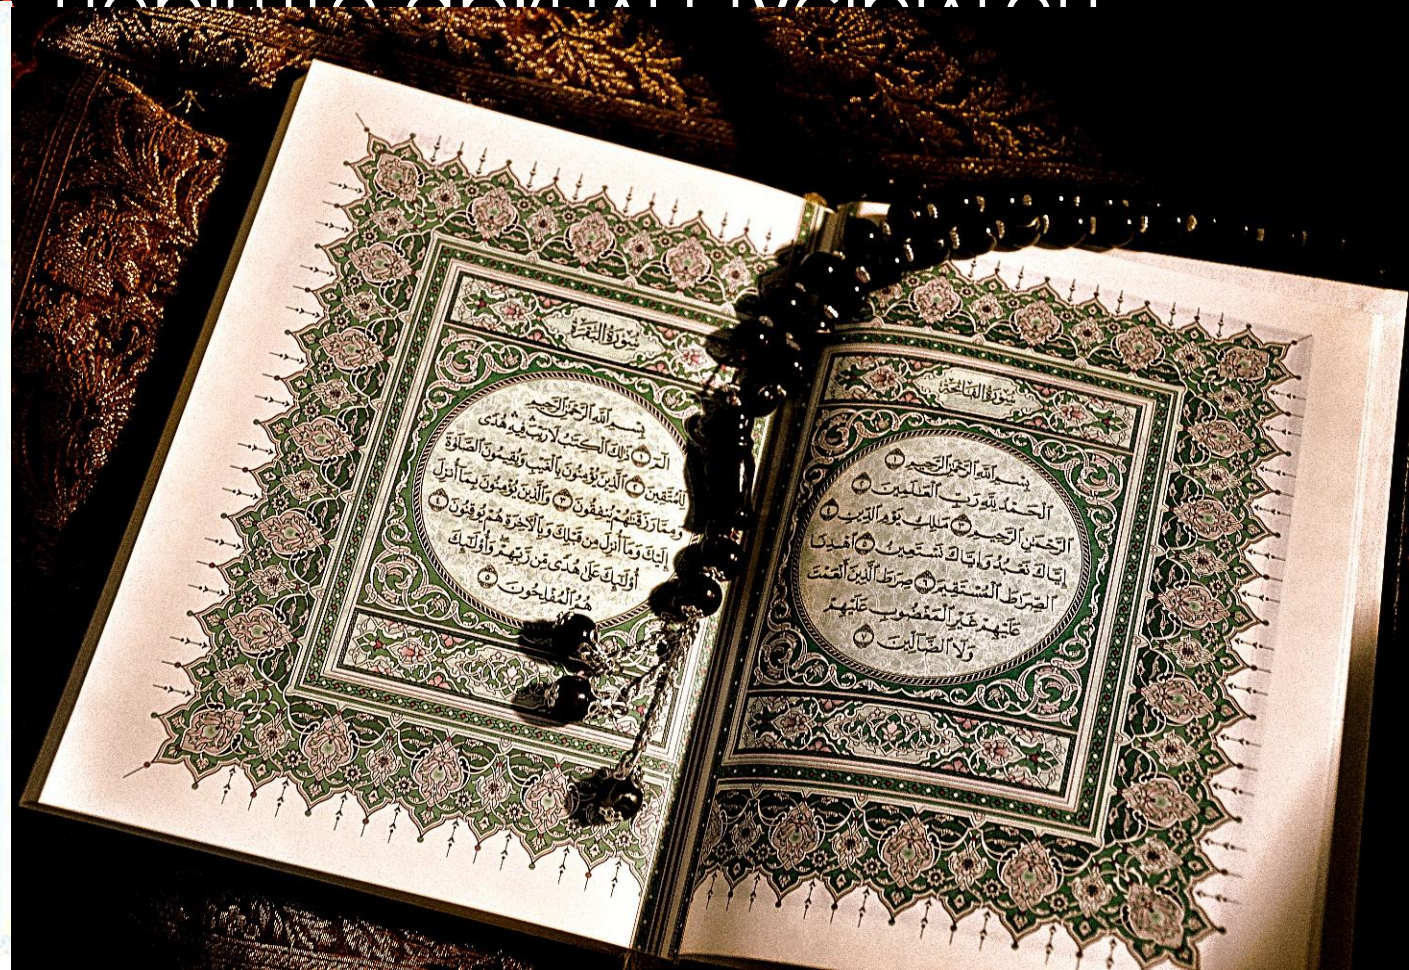 سُورَةُ الْفَاتِحَةِ
بِسْمِ اللَّهِ الرَّحْمَٰنِ الرَّحِيمِ ١
الْحَمْدُ لِلَّهِ رَبِّ الْعَالَمِينَ ٢
الرَّحْمَٰنِ الرَّحِيمِ ٣ مَالِكِ يَوْمِ الدِّينِ ٤
إِيَّاكَ نَعْبُدُ وَإِيَّاكَ نَسْتَعِينُ ٥ اهْدِنَا
الصِّرَاطَ الْمُسْتَقِيمَ ٦ صِرَاطَ الَّذِينَ أَنْعَمْتَ
عَلَيْهِمْ غَيْرِ الْمَغْضُوبِ عَلَيْهِمْ
وَلَا الضَّالِّينَ ٧
سُورَةُ الْبَقَرَةِ
بِسْمِ اللَّهِ الرَّحْمَٰنِ الرَّحِيمِ
الم ١ ذَٰلِكَ الْكِتَابُ لَا رَيْبَ فِيهِ هُدًى
لِّلْمُتَّقِينَ ٢ الَّذِينَ يُؤْمِنُونَ بِالْغَيْبِ وَيُقِيمُونَ الصَّلَاةَ
وَمِمَّا رَزَقْنَاهُمْ يُنفِقُونَ ٣ وَالَّذِينَ يُؤْمِنُونَ بِمَا أُنزِلَ
إِلَيْكَ وَمَا أُنزِلَ مِن قَبْلِكَ وَبِالْآخِرَةِ هُمْ يُوقِنُونَ ٤
أُولَٰئِكَ عَلَىٰ هُدًى مِّن رَّبِّهِمْ وَأُولَٰئِكَ
هُمُ الْمُفْلِحُونَ ٥